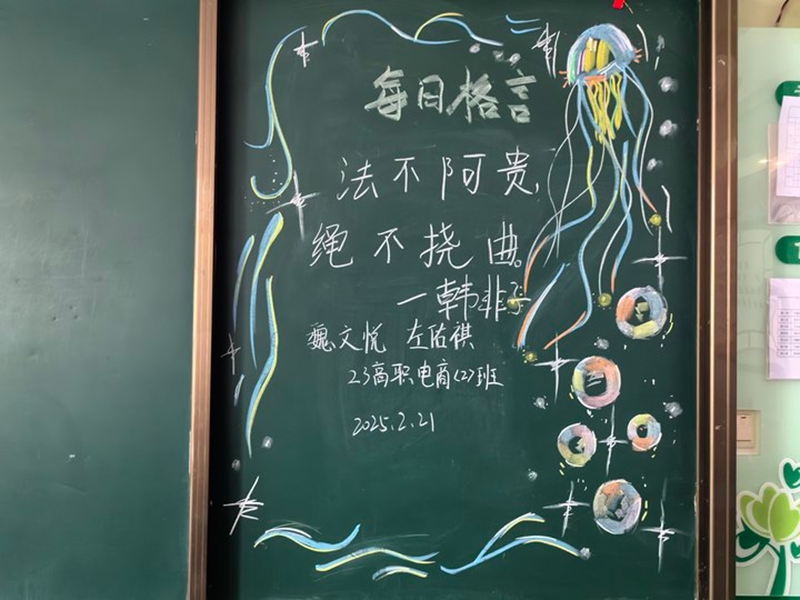 每日格言
法不阿贵,
绳不挠曲。
一韩非子
魏文悦 左佑祺
23高职电商(2)班
2025.2.21